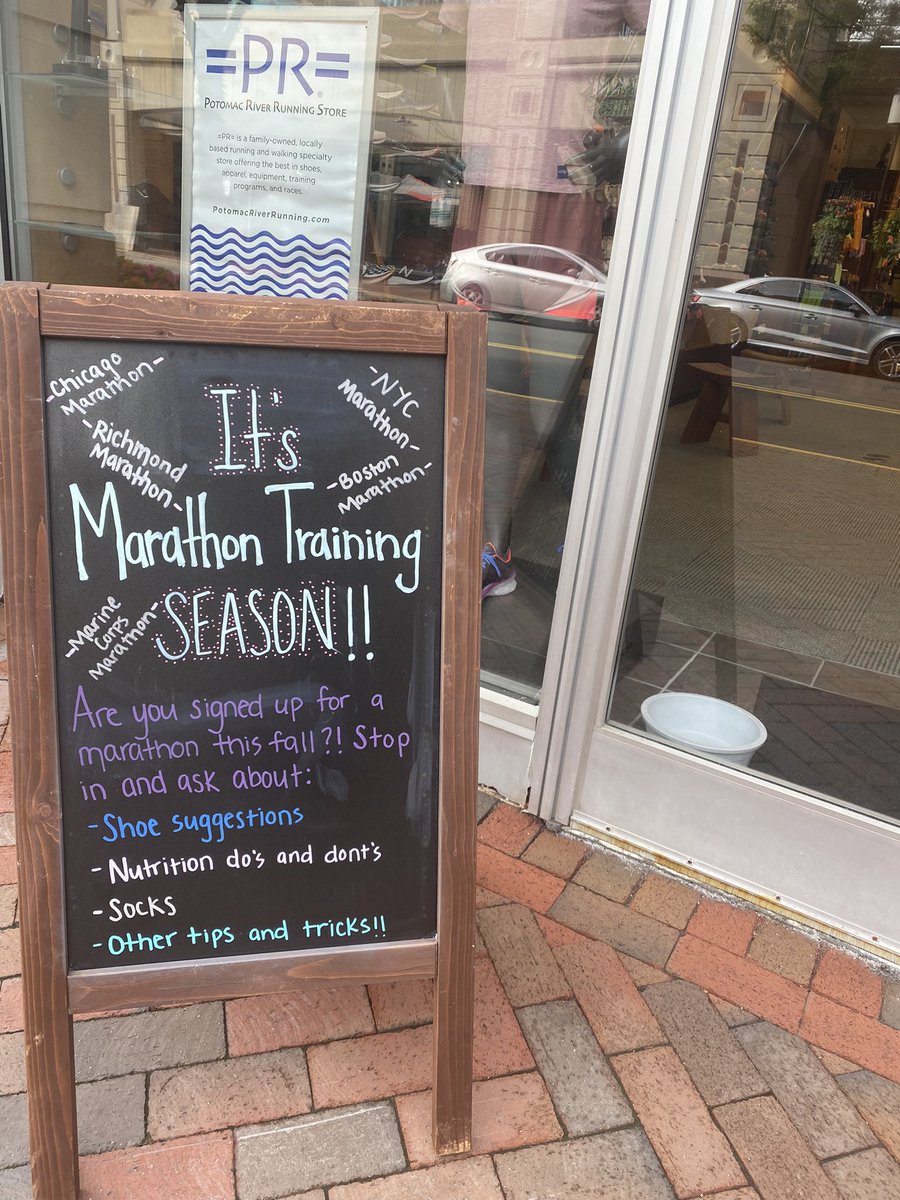 =PR=®
POTOMAC RIVER RUNNING STORE
=PR= is a family-owned, locally
based running and walking specialty
store offering the best in shoes,
apparel, equipment, training
programs, and races.
PotomacRiverRunning.com
-Chicago
Marathon-
-Richmond
Marathon-
-NYC
Marathon-
-Boston
Marathon-
It's
Marathon Training
SEASON!!
-Marine
Corps
Marathon-
Are you signed up for a
marathon this fall?! Stop
in and ask about:
-Shoe suggestions
-Nutrition do's and dont's
-Socks
-Other tips and tricks!!